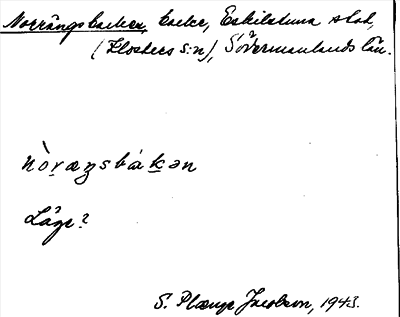 Norrängsbacken, backe, Eskilstuna stad,
(Klosters s:n), Södermanlands län.
nòræŋsbákən
Läge?
S. Plænge Jacobson, 1943.